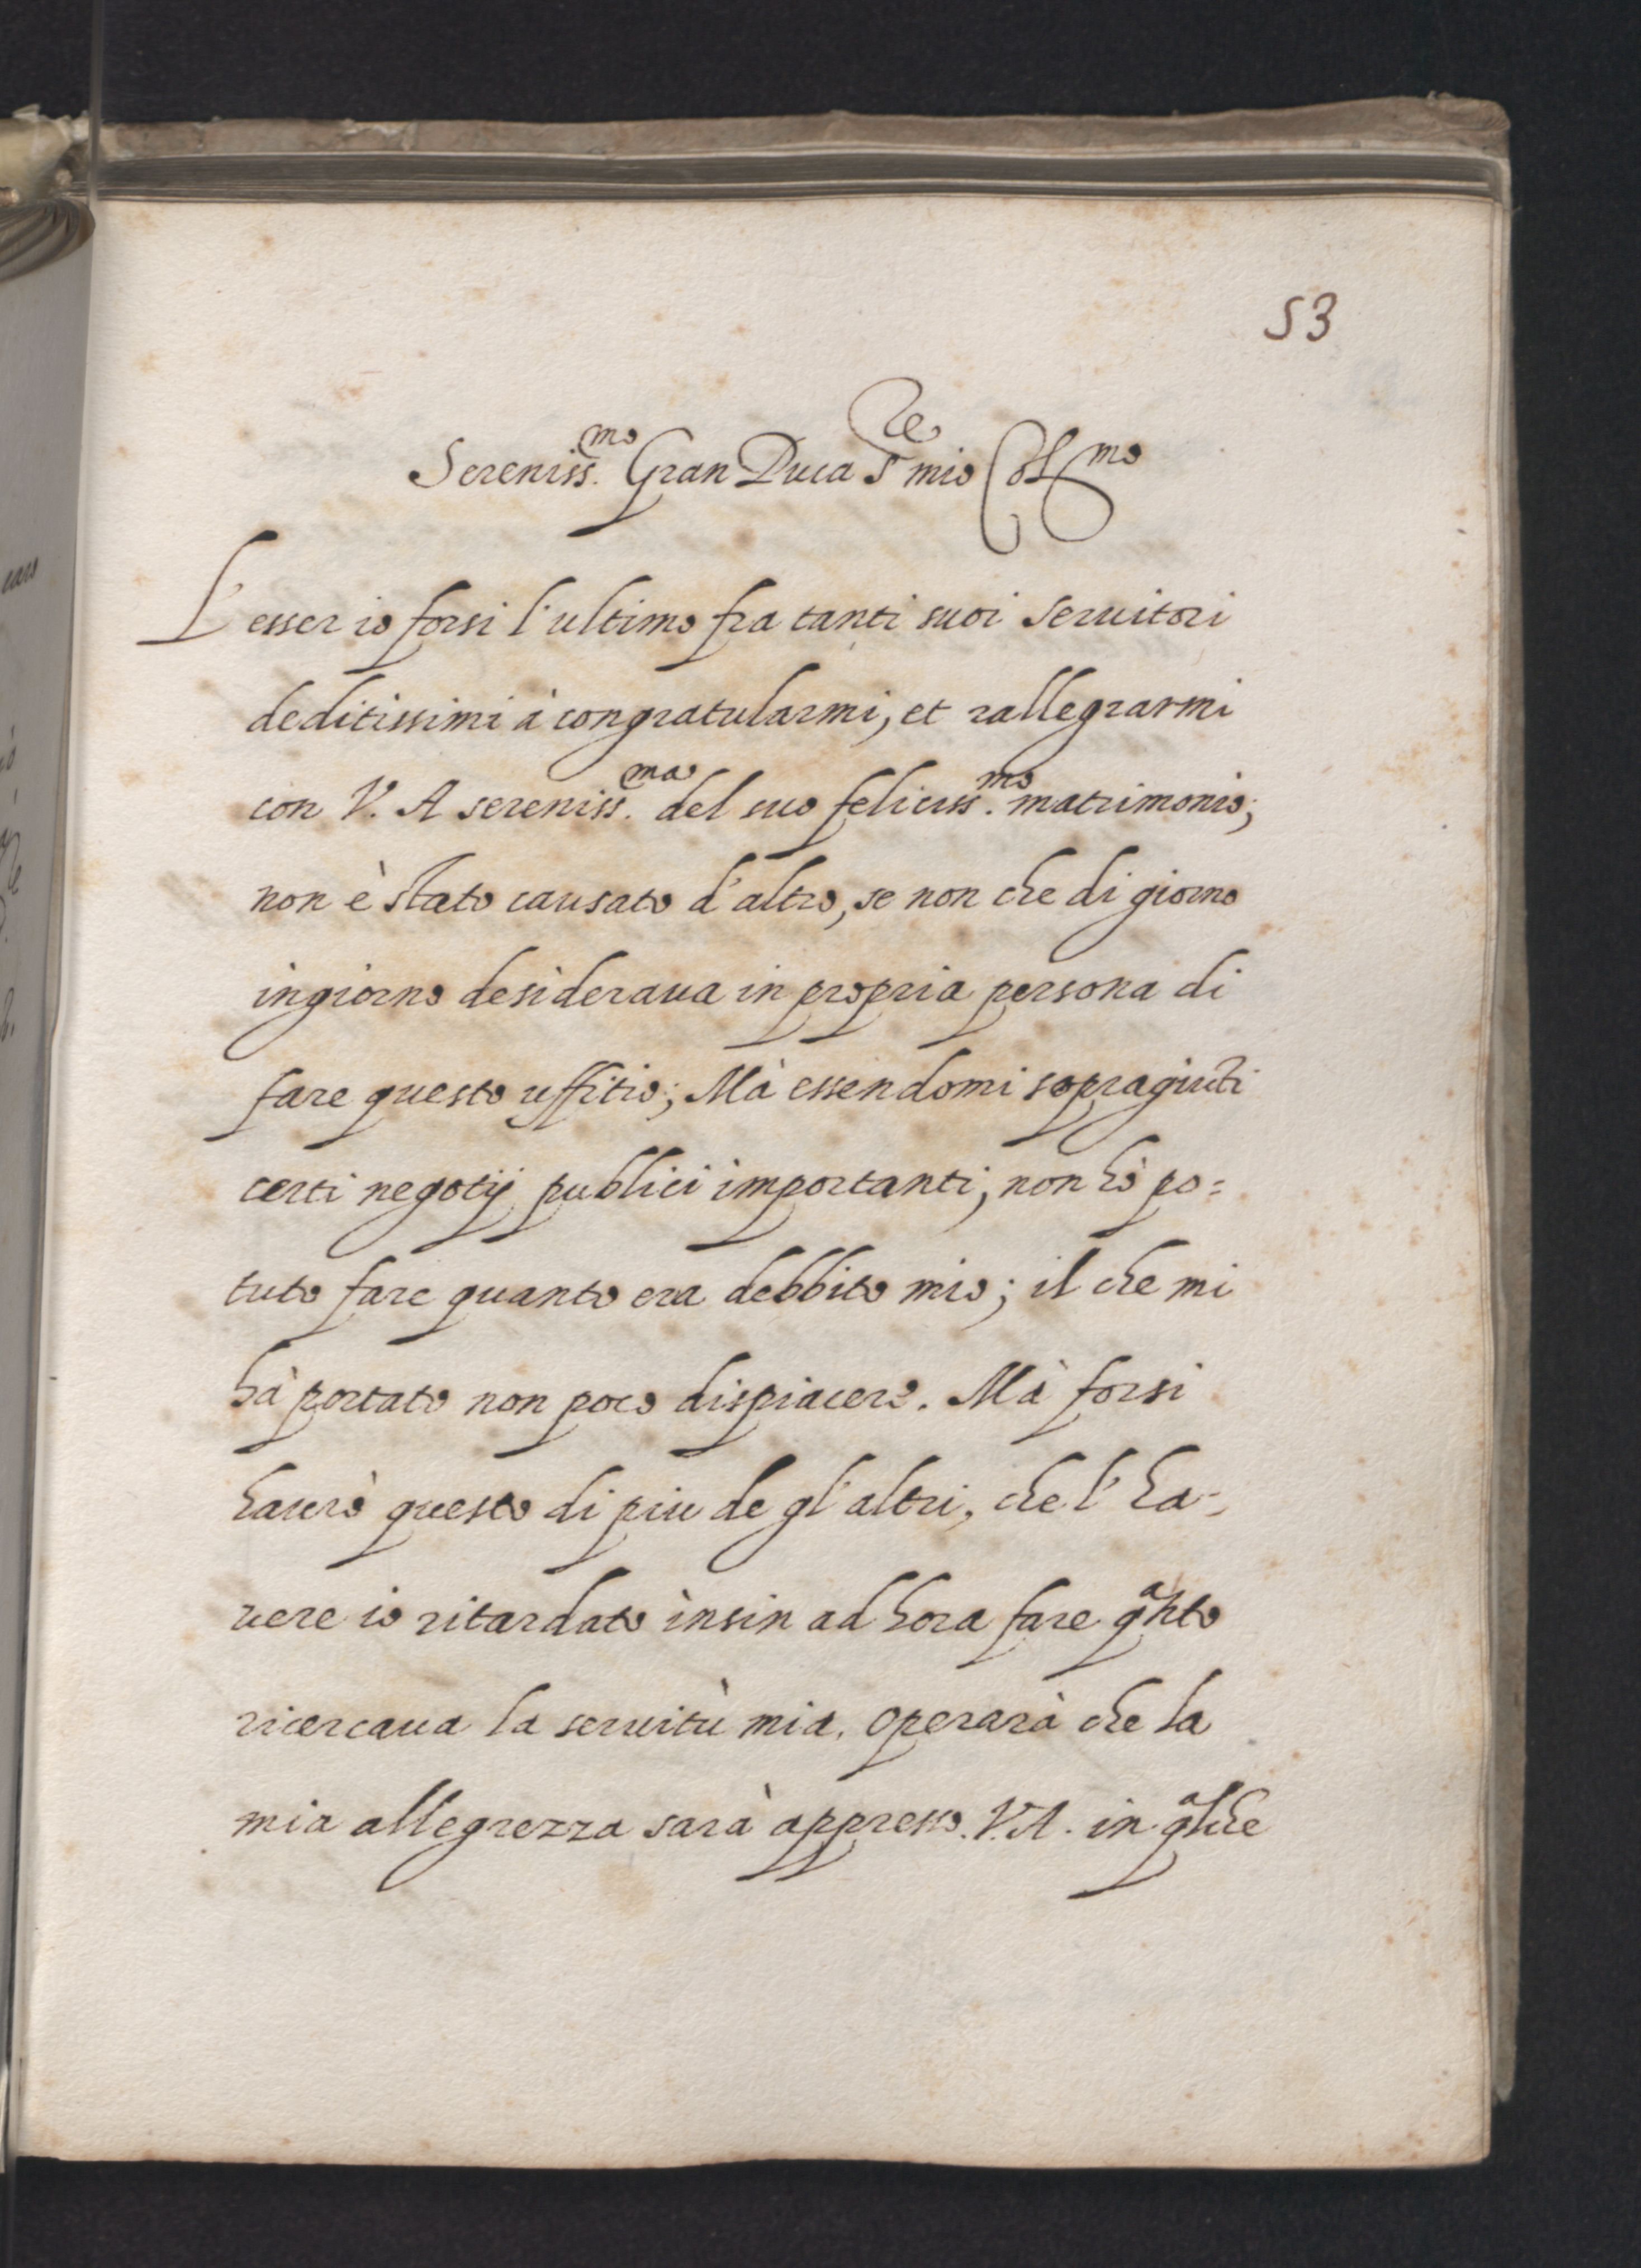 53
Sereniss.mo Gran Duca S.re mio Col.mo
L'esser io forsi l'ultimo fra tanti suoi Seruitori
deditissimi à congratularmi, et rallegrarmi
con V. A sereniss.ma del suo feliciss.mo matrimonio;
non è stato causato d'altro, se non che di giorno
ingiorno desideraua in propria persona di
fare questo uffitio; Mà essendomi sopragiuti
certi negotij publici importanti, non hò po=
tuto fare quanto era debbito mio; il che mi
hà portato non poco dispiacere. Mà forsi
hauerò questo di piu de gl'altri, che l'ha=
uere io ritardato insin ad hora fare qanto
ricercaua la seruitù mia, operarà che la
mia allegrezza sarà appresso V.A. in qalche